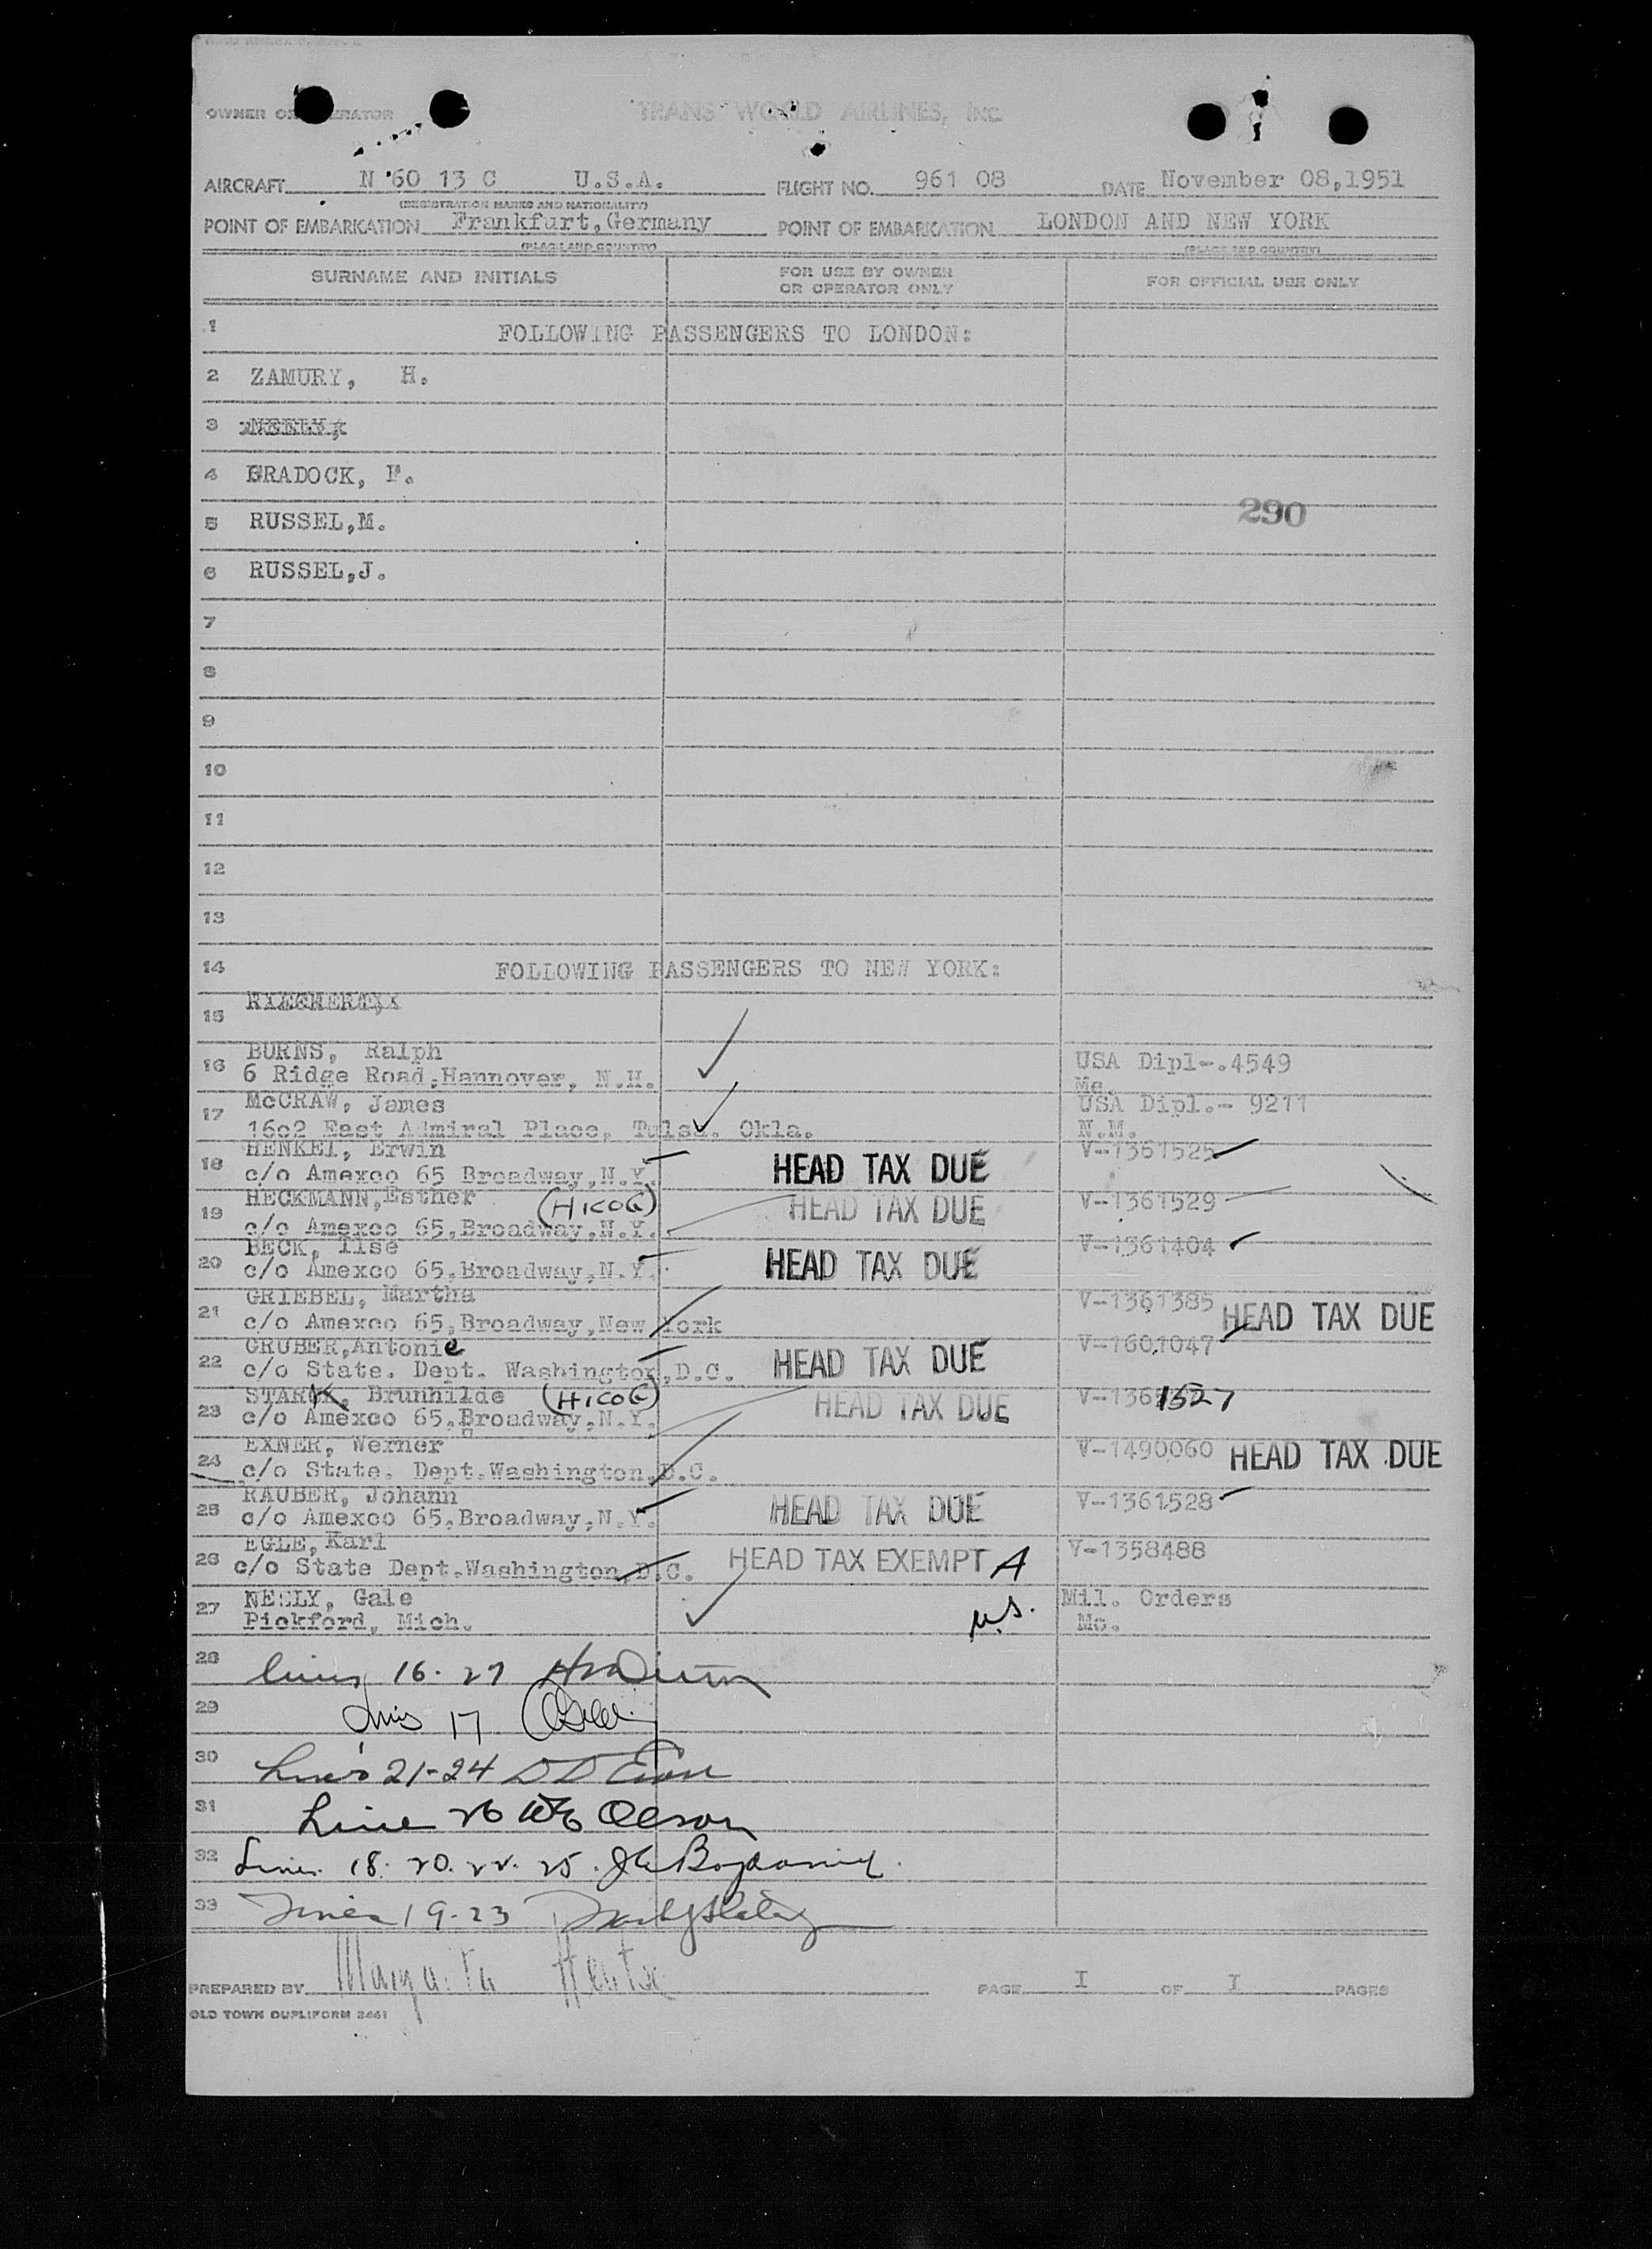 OWNER OR OPERATOR TRANS WORLD AIRLINES, INC
AIRCRAFT N 60 13 C U.S.A. FLIGHT NO. 961 08 DATE November 08,1951
(REGISTRATION MARKS AND NATIONALITY)
POINT OF EMBARKATION Frankfurt,Germany POINT OF EMBARKATION LONDON AND NEW YORK
(PLACE AND COUNTRY) (PLACE AND COUNTRY)
SURNAME AND INITIALS FOR USE BY OWNER OR OPERATOR ONLY FOR OFFICIAL USE ONLY
1 FOLLOWING PASSENGERS TO LONDON:
2 ZAMURY, H.
3 NEELY,
4 BRADOCK, F.
5 RUSSEL,M. 290
6 RUSSEL,J.
7
8
9
10
11
12
13
14 FOLLOWING PASSENGERS TO NEW YORK:
15
16 BURNS, Ralph USA Dipl-.4549
6 Ridge Road,Hannover, N.H. Me.
17 McCRAW, James USA Dipl.- 9211
16o2 East Admiral Place, Tulsa. Okla. N.M.
18 HENKEL, Erwin V-1361525
c/o Amexco 65 Broadway,N.Y. HEAD TAX DUE
19 HECKMANN,Esther (HICOG) HEAD TAX DUE V-1361529
c/o Amexco 65,Broadway,N.Y.
20 BECK, Ilse V-1361404
c/o Amexco 65,Broadway,N.Y. HEAD TAX DUE
21 GRIEBEL, Martha V-1361385 HEAD TAX DUE
c/o Amexco 65,Broadway,New York
22 GRUBER,Antonie V-1601047
c/o State. Dept. Washington,D.C. HEAD TAX DUE
23 STARK, Brunhilde (HICOG) HEAD TAX DUE V-1361527
c/o Amexco 65,Broadway,N.Y.
24 EXNER, Werner V-1490060 HEAD TAX DUE
c/o State. Dept.Washington,D.C.
25 RAUBER, Johann HEAD TAX DUE V-1361528
c/o Amexco 65,Broadway,N.Y.
26 EGLE,Karl HEAD TAX EXEMPT A V-1358488
c/o State Dept.Washington,D.C.
27 NEELY, Gale U.S. Mil. Orders
Pickford, Mich. Mo.
28 lines 16-27
29 Lines 17
30 Lines 21-24
31 Line 26 Olson
32 Lines 18. 20. 22. 25.
33 Lines 19-23
PREPARED BY PAGE I OF I PAGES
OLD TOWN DUPLIFORM 2661